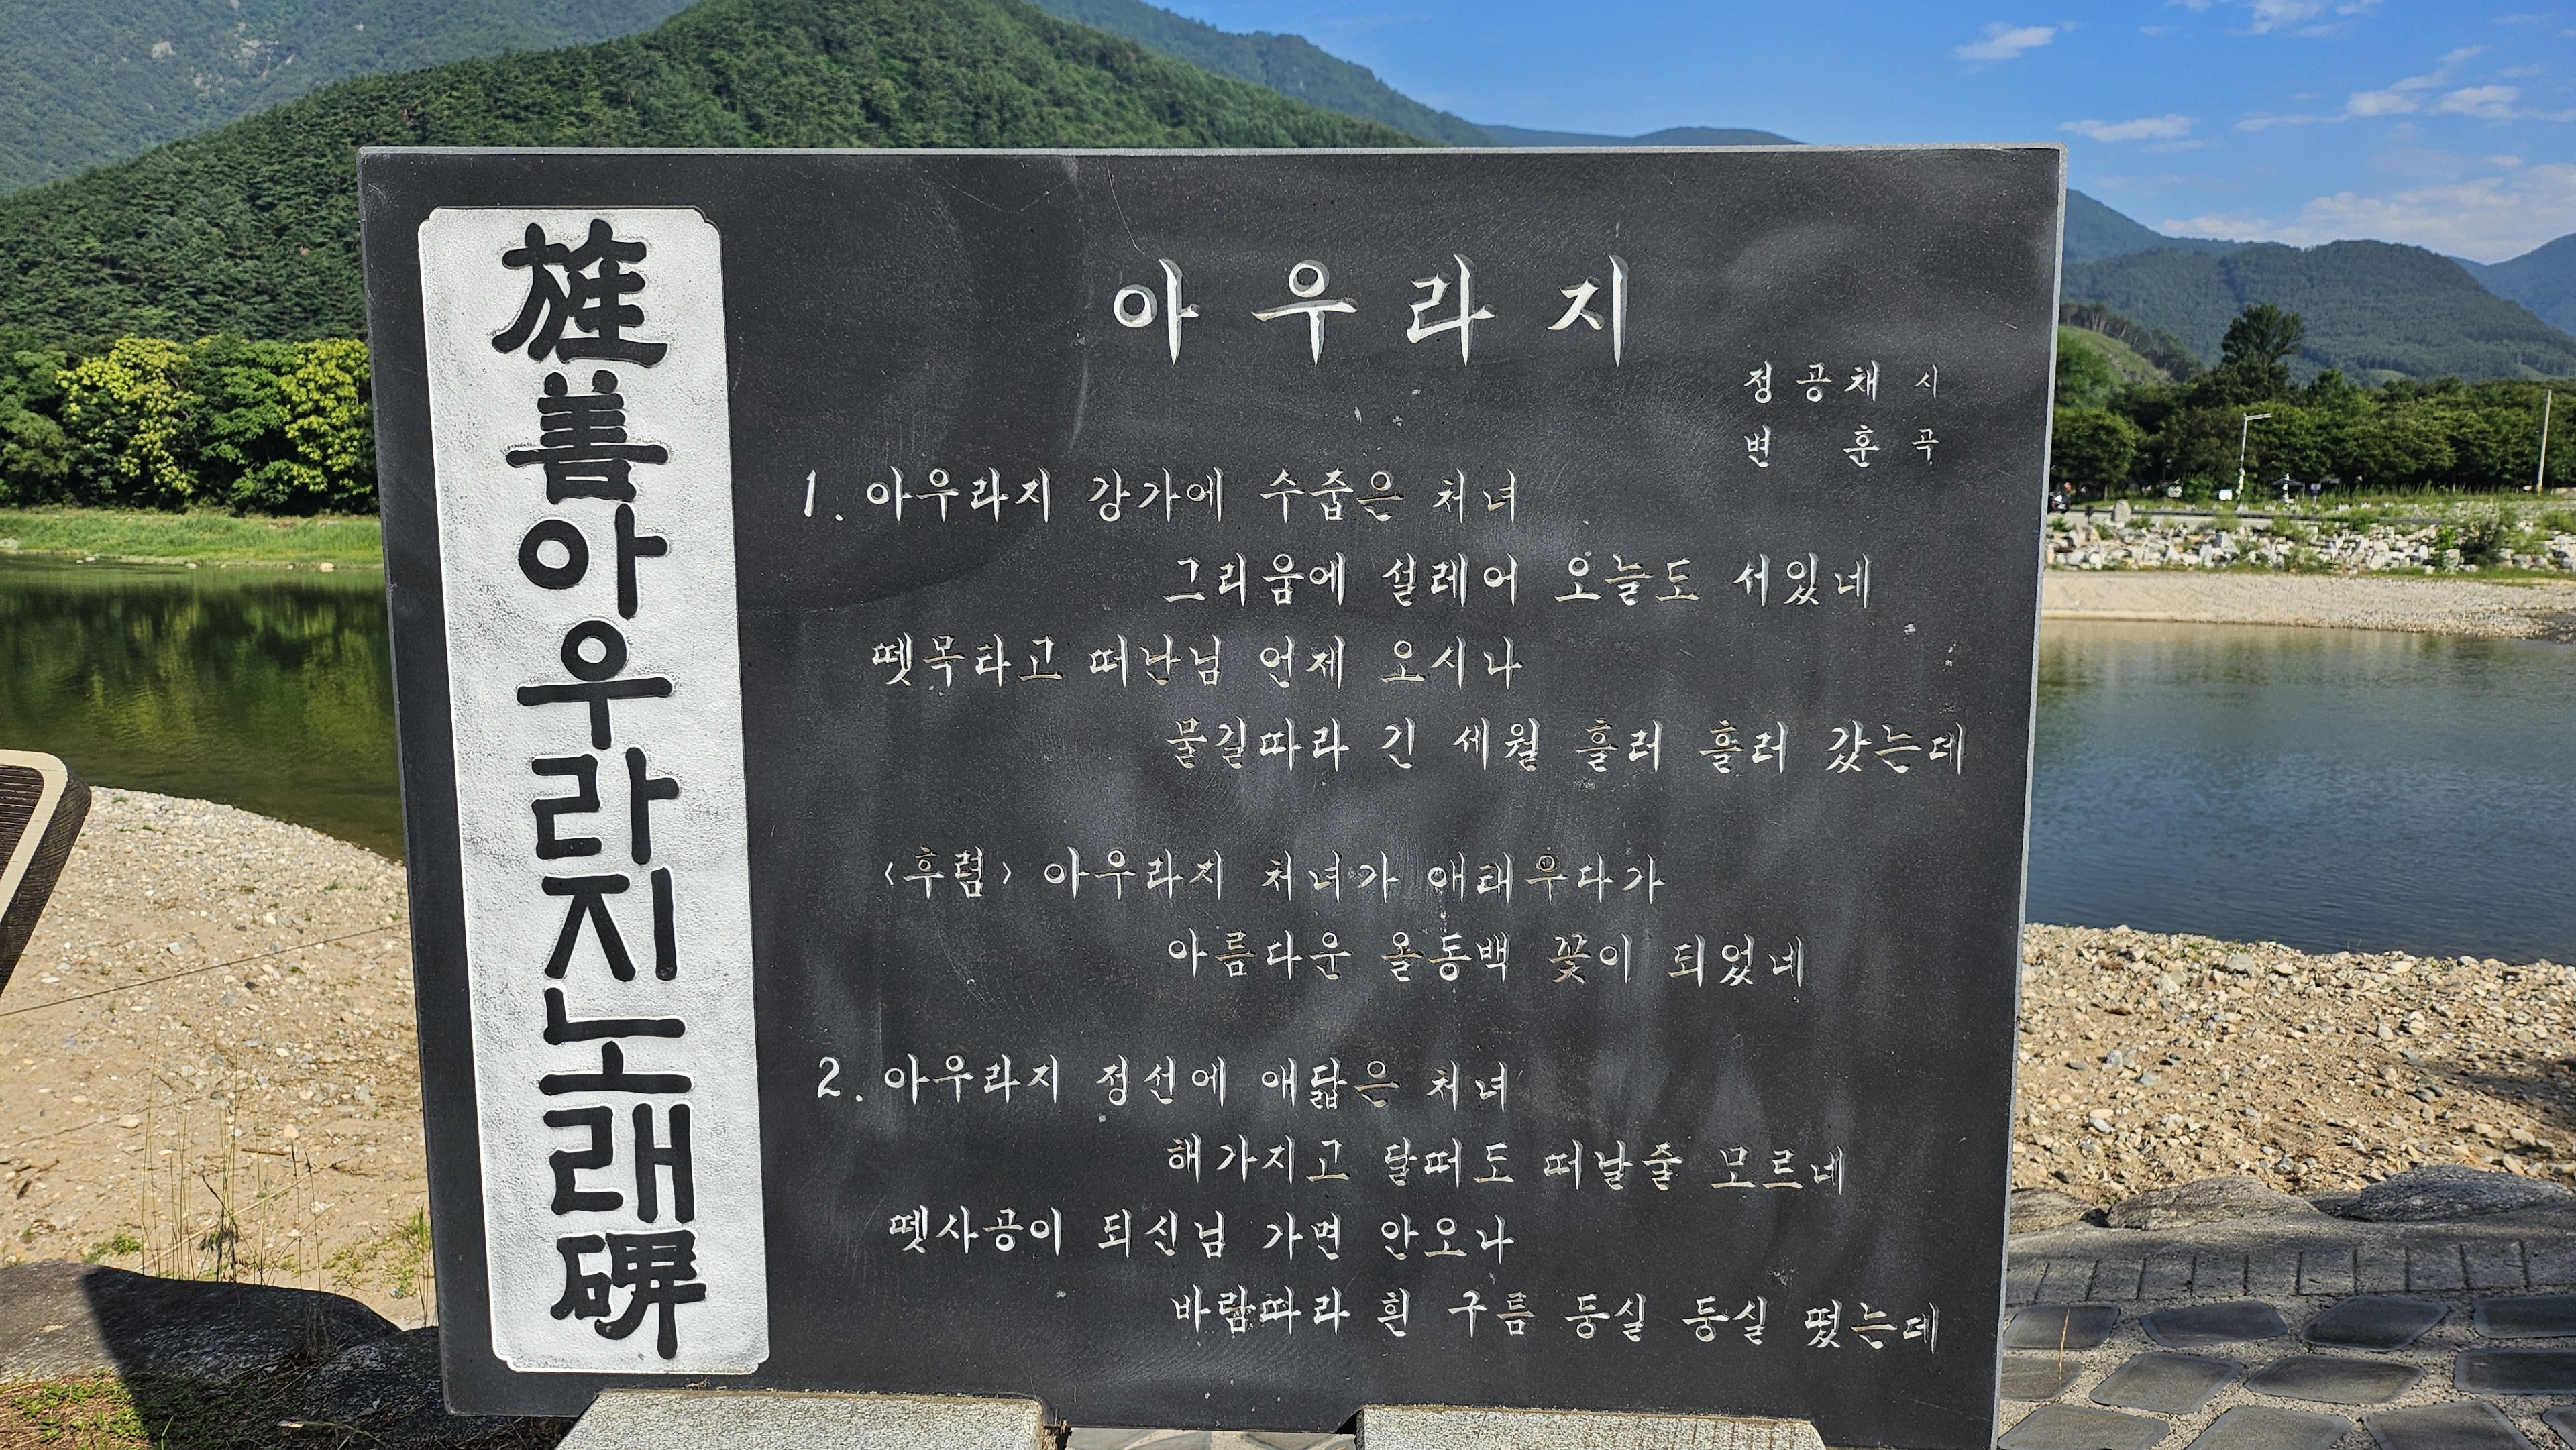 旌善아우라지노래碑
아우라지
정공채 시
변 훈 곡
1. 아우라지 강가에 수줍은 처녀
그리움에 설레어 오늘도 서있네
뗏목타고 떠난님 언제 오시나
물길따라 긴 세월 흘러 흘러 갔는데
<후렴> 아우라지 처녀가 애태우다가
아름다운 올동백 꽃이 되었네
2. 아우라지 정선에 애닯은 처녀
해가지고 달떠도 떠날줄 모르네
뗏사공이 되신님 가면 안오나
바람따라 흰 구름 둥실 둥실 떴는데